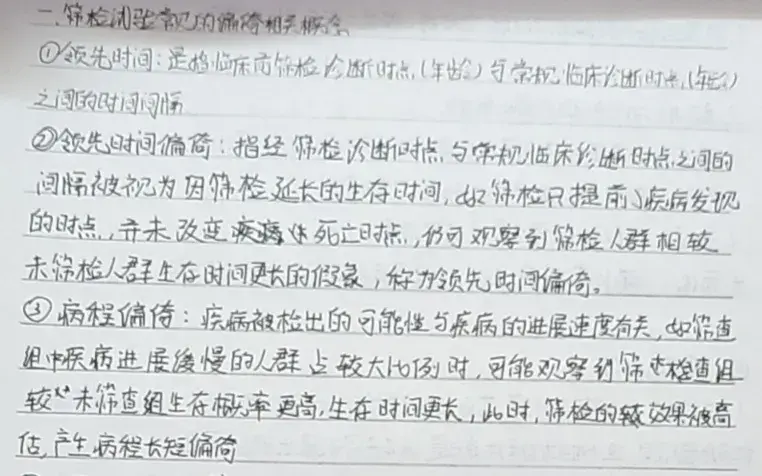 二.筛检试验常见的偏倚相关概念
①领先时间:是指临床前筛检诊断时点(年龄)与常规临床诊断时点(年龄)
之间的时间间隔
②领先时间偏倚:指经筛检诊断时点与常规临床诊断时点之间的
间隔被视为因筛检延长的生存时间,如筛检只提前了疾病发现
的时点,并未改变疾病死亡时点,仍可观察到筛检人群相较
未筛检人群生存时间更长的假象,称为领先时间偏倚。
③病程偏倚:疾病被检出的可能性与疾病的进展速度有关,如筛查
组中疾病进展缓慢的人群占较大比例时,可能观察到筛检查组
较未筛查组生存概率更高,生存时间更长,此时,筛检的效果被高
估,产生病程长短偏倚